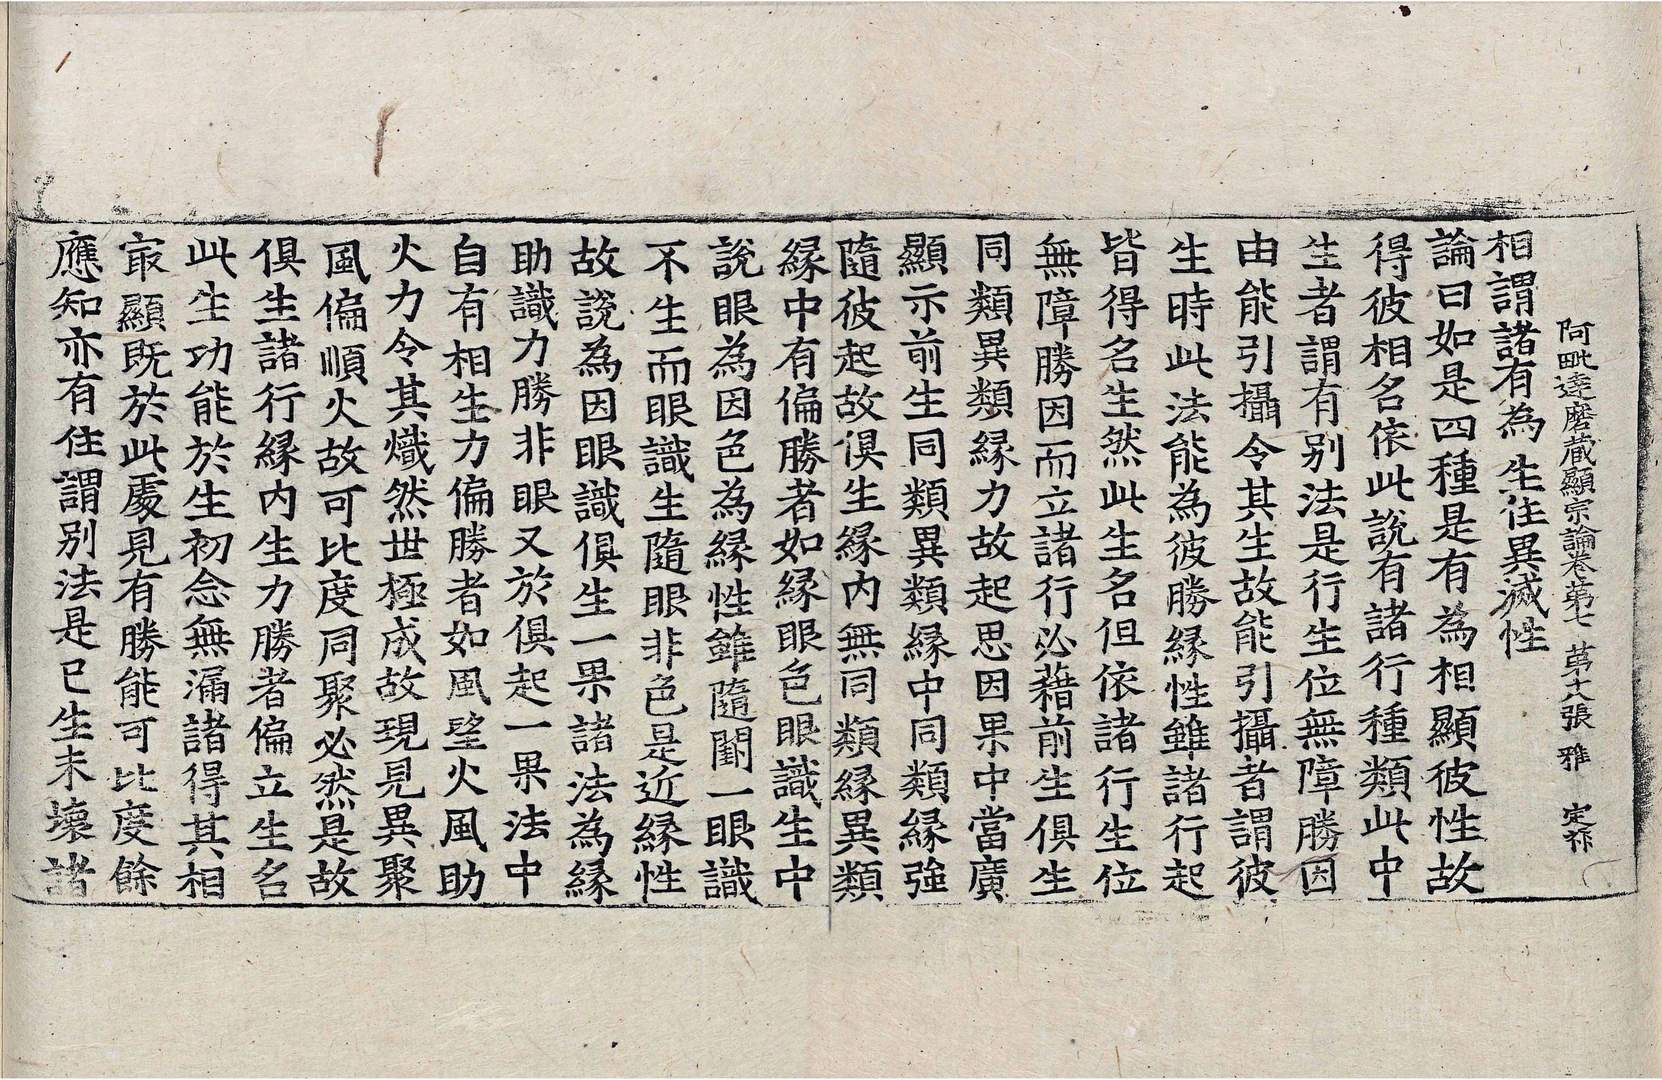 阿毗達磨藏顯宗論卷第七 第十八張 雅 定祚
相謂諸有為 生住異滅性
論曰如是四種是有為相顯彼性故
得彼相名依此說有諸行種類此中
生者謂有別法是行生位無障勝因
由能引攝令其生故能引攝者謂彼
生時此法能為彼勝緣性雖諸行起
皆得名生然此生名但依諸行生位
無障勝因而立諸行必藉前生俱生
同類異類緣力故起思因果中當廣
顯示前生同類異類緣中同類緣強
隨彼起故俱生緣內無同類緣異類
緣中有偏勝者如緣眼色眼識生中
說眼為因色為緣性雖隨闕一眼識
不生而眼識生隨眼非色是近緣性
故說為因眼識俱生一果諸法為緣
助識力勝非眼又於俱起一果法中
自有相生力偏勝者如風望火風助
火力令其熾然世極成故現見異聚
風偏順火故可比度同聚必然是故
俱生諸行緣內生力勝者偏立生名
此生功能於生初念無漏諸得其相
最顯既於此處見有勝能可比度餘
應知亦有住謂別法是已生未壞諸